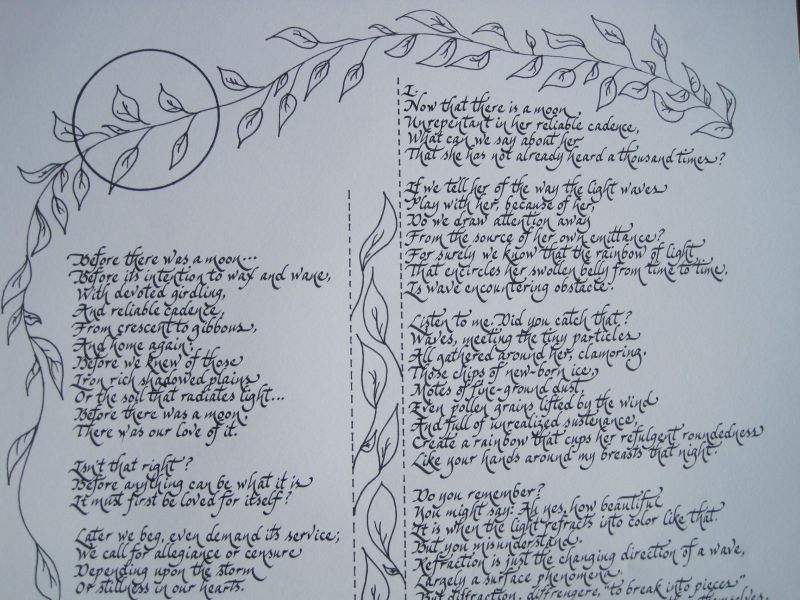 Before there was a moon...
Before its intention to wax and wane,
With devoted girdling,
And reliable cadence,
From crescent to gibbous,
And home again.
Before we knew of those
Iron rich shadowed plains
Or the soil that radiates light...
Before there was a moon.
There was our love of it.
Isn't that right?
Before anything can be what it is
It must first be loved for itself?
Later we beg, even demand its service;
We call for allegiance or censure
Depending upon the storm
Or stillness in our hearts.
I.
Now that there is a moon
Unrepentant in her reliable cadence,
What can we say about her
That she has not already heard a thousand times?
If we tell her of the way the light waves
Play with her, because of her
Do we draw attention away
From the source of her own emittance?
For surely we know that the rainbow of light
That encircles her swollen belly from time to time,
Is wave encountering obstacle.
Listen to me. Did you catch that?
Waves, meeting the tiny particles
All gathered around her, clamoring.
Those chips of new-born ice,
Motes of fine-ground dust,
Even pollen grains lifted by the wind
And full of unrealized sustenance,
Create a rainbow that cups her refulgent roundedness
Like your hands around my breasts that night.
Do you remember?
You might say: Ah yes, how beautiful
It is when the light refracts into color like that.
But you misunderstand.
Refraction is just the changing direction of a wave,
Largely a surface phenomena.
But diffraction, diffrengere, "to break into pieces"
themselves